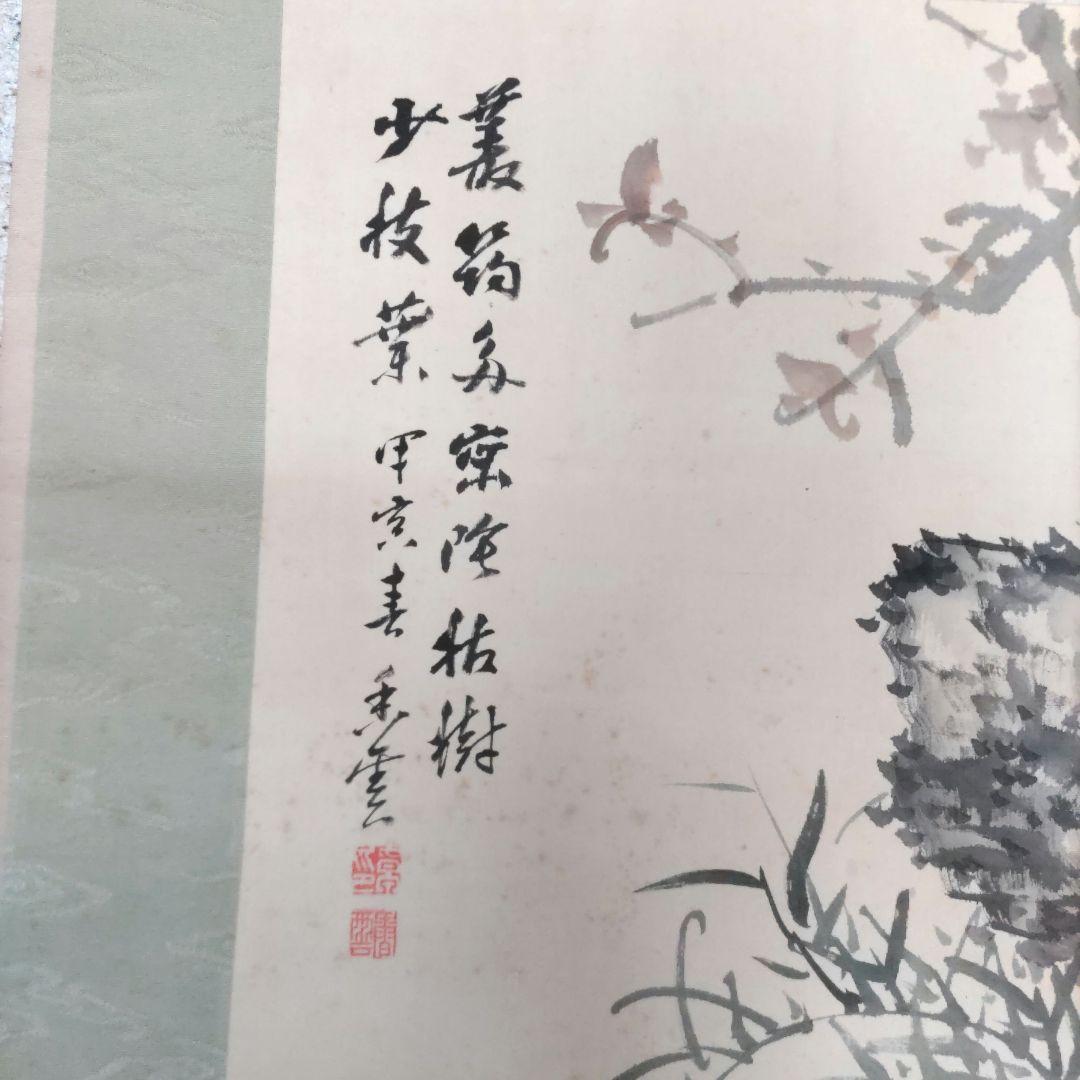 叢筠多密陰枯樹
少枝葉 甲寅春 香雲